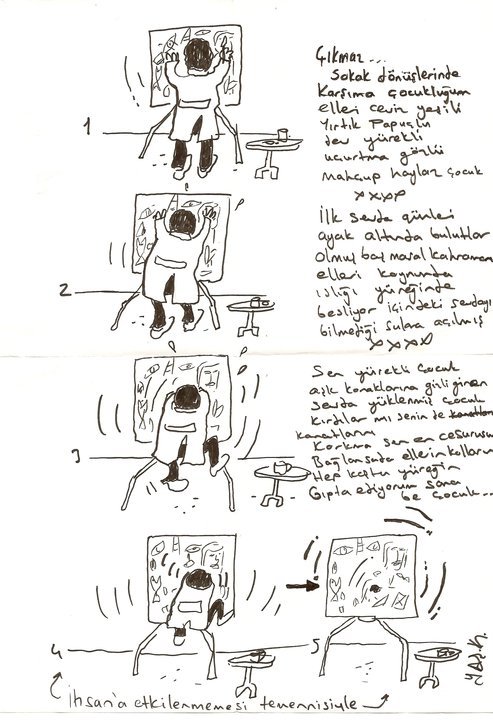 Çıkmaz...
Sokak dönüşlerinde
Karşıma çocukluğum
elleri ceviz yeşili
Yırtık Papuçlu
dev yürekli
uçurtma gözlü
mahçup haylaz çocuk
xxxx
İlk sevda günleri
ayak altında bulutlar
olmuş baş masal kahramanı
elleri koynunda
ıslığı yüreğinde
besliyor içindeki sevdayı
bilmediği sulara açılmış
xxxx
Sen yürekli çocuk
aşk konaklarına gizli giren
Sevda yüklenmiş çocuk
Kırdılar mı senin de
kanatlarını
Korkma sen en cesurusun
Bağlansada ellerin kolların
Hep koştu yüreğin
Gıpta ediyorum sana
be çocuk...
1
2
3
4
5
İhsan'a etkilenmemesi temennisiyle